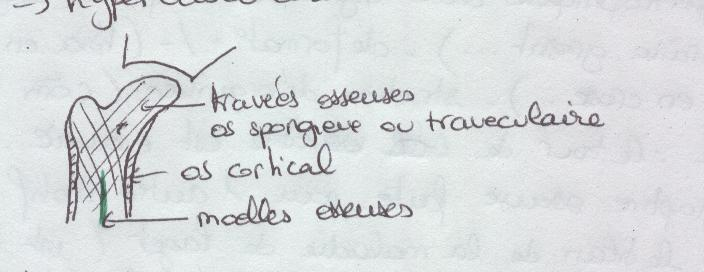 travées osseuses
os spongieux ou traveculaire
os cortical
moelles osseuses